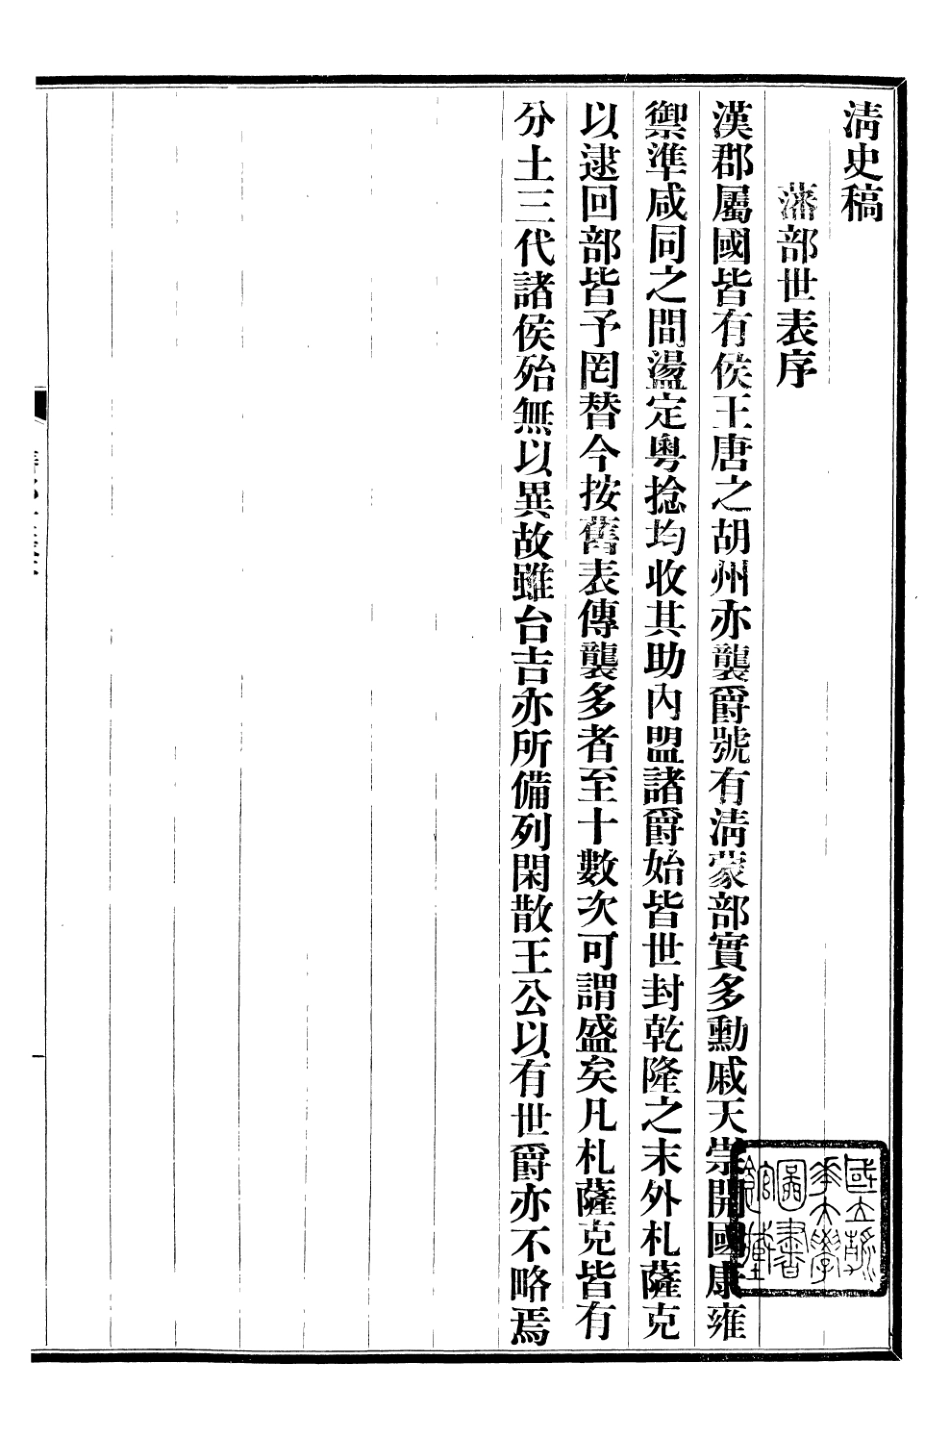 清史稿
藩部世表序
漢郡屬國皆有侯王唐之胡州亦襲爵號有清蒙部實多勳戚天崇開國康雍
禦準咸同之間盪定粵捻均收其助內盟諸爵始皆世封乾隆之末外札薩克
以逮回部皆予罔替今按舊表傳襲多者至十數次可謂盛矣凡札薩克皆有
分土三代諸侯殆無以異故雖台吉亦所備列閑散王公以有世爵亦不略焉